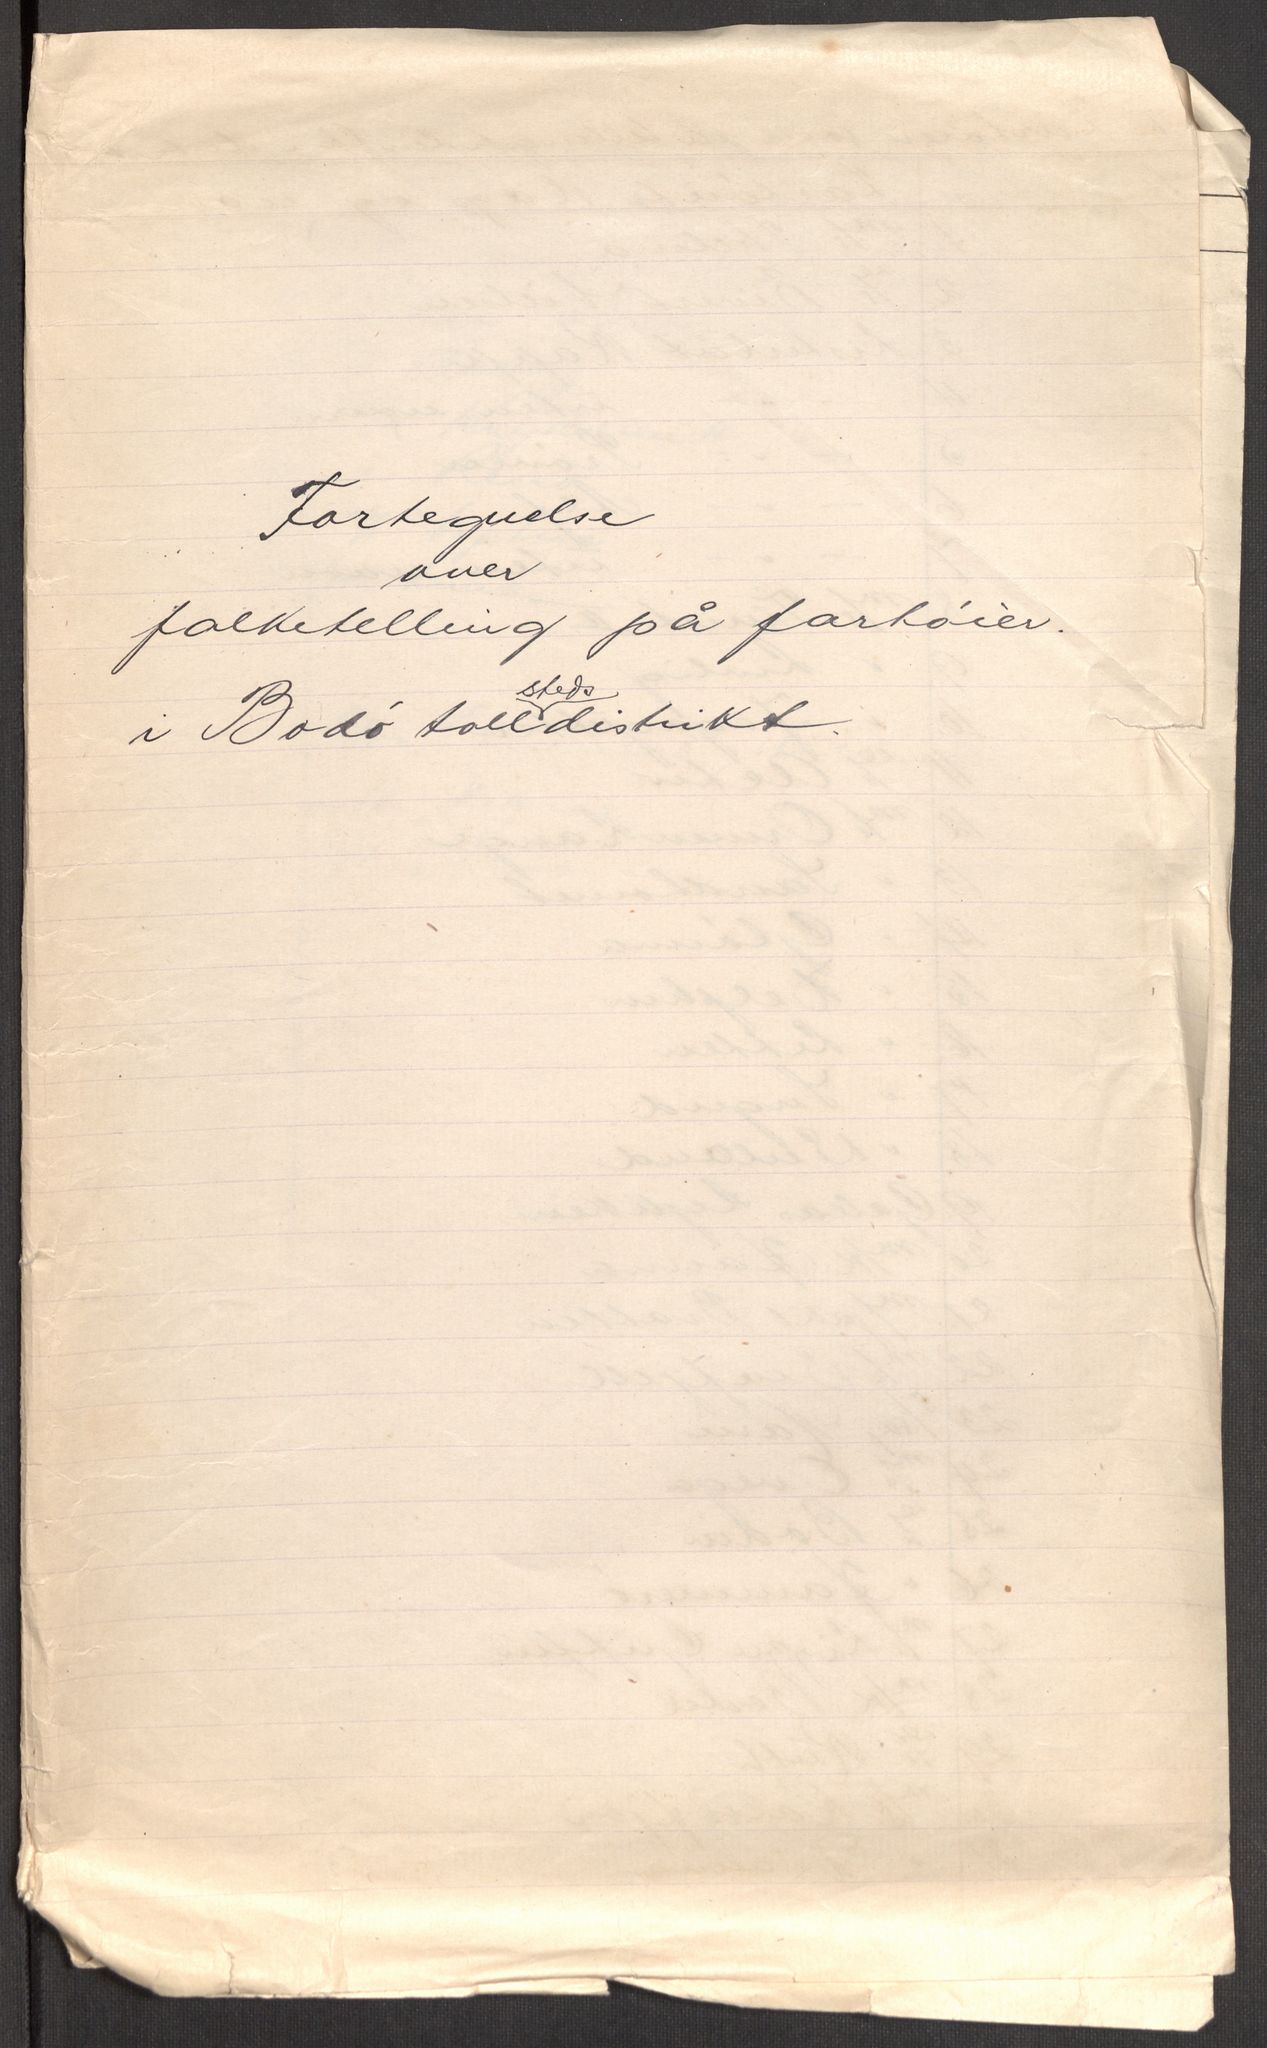 Fortegnelse
over
folketelling på fartøier.
i Bodø tollstedsdistrikt.